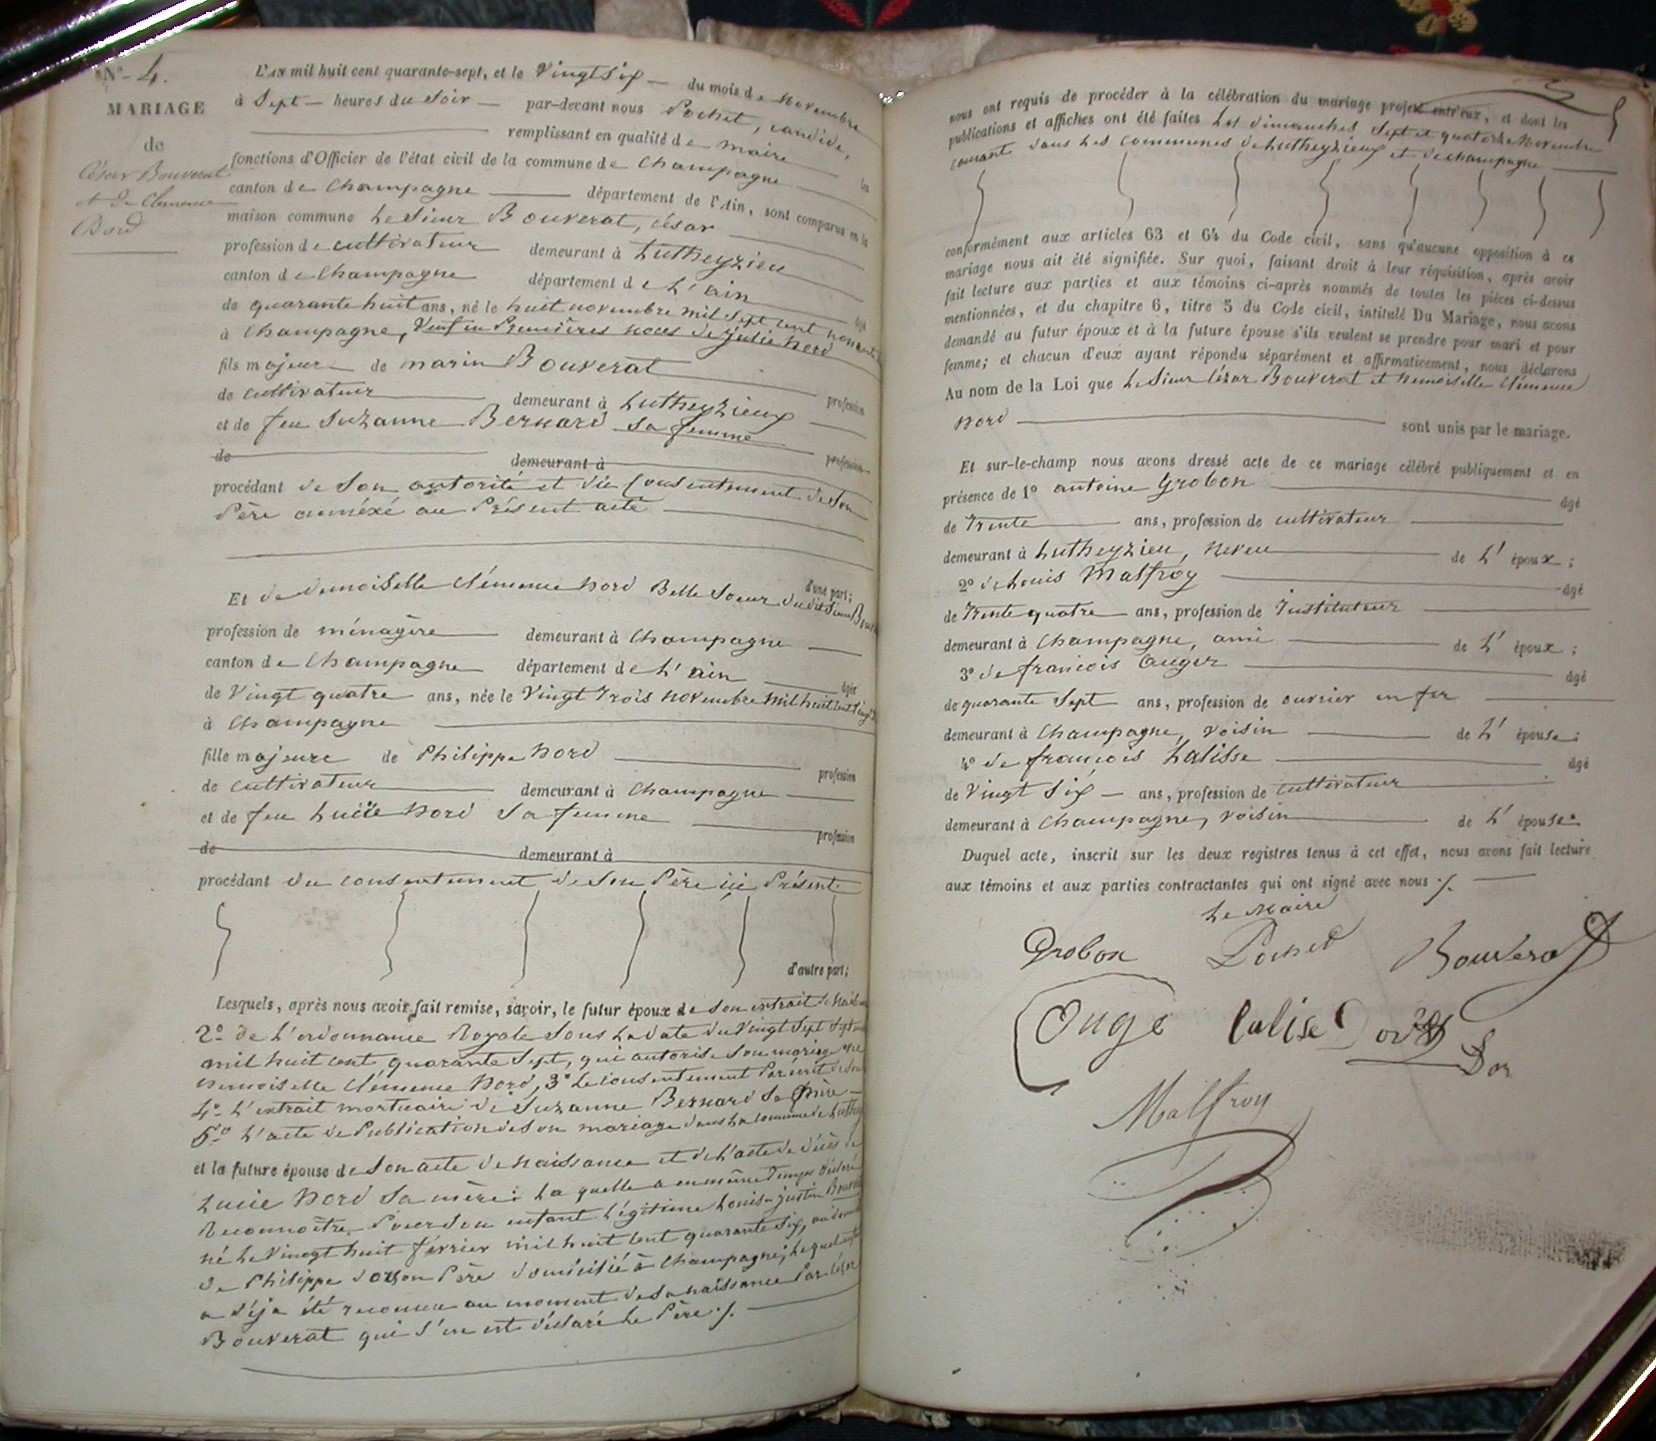 N° 4.
MARIAGE
de
César Bouverat
et de Clémence
Dord
L'AN mil huit cent quarante-sept, et le vingt six du mois de novembre
à sept heures du soir par-devant nous Pochet, candide,
remplissant en qualité de maire les
fonctions d'Officier de l'état civil de la commune de Champagne
canton de Champagne département de l'Ain, sont comparus en la
maison commune le sieur Bouverat, César
profession de cultivateur demeurant à Lutheyzieu
canton de Champagne département de l'ain âgé
de quarante huit ans, né le huit novembre mil sept cent nonante
à Champagne, veuf en premières noces de julie Dord
fils majeur de marin Bouverat profession
de cultivateur demeurant à Lutheyzieux
et de feu Suzanne Bernard sa femme profession
de demeurant à
procédant de son autorité et du consentement de son
Père annéxé au Présent acte
d'une part;
Et de demoiselle Clémence Dord Belle Soeur dudit Sieur
profession de ménagère demeurant à Champagne
canton de Champagne département de l'ain âgée
de vingt quatre ans, née le vingt trois novembre mil huit cent vingt
à Champagne
fille majeure de Philippe Dord profession
de cultivateur demeurant à Champagne
et de feu Lucie Dord sa femme profession
de demeurant à
procédant du consentement de son Père ici Présent
d'autre part;
Lesquels, après nous avoir fait remise, savoir, le futur époux de son extrait de
2° de l'ordonnance Royale sous la date du vingt sept
mil huit cent quarante sept, qui autorise son mariage
Demoiselle Clémence Dord, 3° le consentement Par écrit de son
4° l'extrait mortuaire de Suzanne Bernard sa mère
5° l'acte de Publication de son mariage dans la commune de
et la future épouse de son acte de naissance et de l'acte de décès de
Lucie Dord sa mère: la quelle a en même temps déclaré
Reconnoître Pour son enfant légitime Louis justin
né le vingt huit février mil huit cent quarante six, au
de Philippe Dord son Père domicilié à Champagne; lequel
a déja été reconnu au moment de sa naissance Par César
Bouverat qui s'en est déclaré le Père ./.
nous ont requis de procéder à la célébration du mariage projeté entr'eux, et dont les
publications et affiches ont été faites les dimanches sept et quatorze novembre
courant dans les communes de Lutheyzieux et de champagne
conformément aux articles 63 et 64 du Code civil, sans qu'aucune opposition à ce
mariage nous ait été signifiée. Sur quoi, faisant droit à leur réquisition, après avoir
fait lecture aux parties et aux témoins ci-après nommés de toutes les pièces ci-dessus
mentionnées, et du chapitre 6, titre 5 du Code civil, intitulé Du Mariage, nous avons
demandé au futur époux et à la future épouse s'ils veulent se prendre pour mari et pour
femme; et chacun d'eux ayant répondu séparément et affirmativement, nous déclarons
Au nom de la Loi que le Sieur César Bouverat et Demoiselle Clémence
Dord sont unis par le mariage.
Et sur-le-champ nous avons dressé acte de ce mariage célébré publiquement et en
présence de 1° antoine Grobon âgé
de Trente ans, profession de cultivateur
demeurant à Lutheyzieu, neveu de l'époux;
2° de Louis Malfroy âgé
de Trente quatre ans, profession de Instituteur
demeurant à Champagne, ami de l'époux;
3° de françois Auger âgé
de quarante sept ans, profession de ouvrier en fer
demeurant à Champagne, voisin de l'épouse;
4° de françois Lalisse âgé
de vingt six ans, profession de cultivateur
demeurant à Champagne, voisin de l'épouse.
Duquel acte, inscrit sur les deux registres tenus à cet effet, nous avons fait lecture
aux témoins et aux parties contractantes qui ont signé avec nous ./.
Le Maire
Grobon Pochet Bouverat
Ouge Lalise Dord
Dor
Malfroy